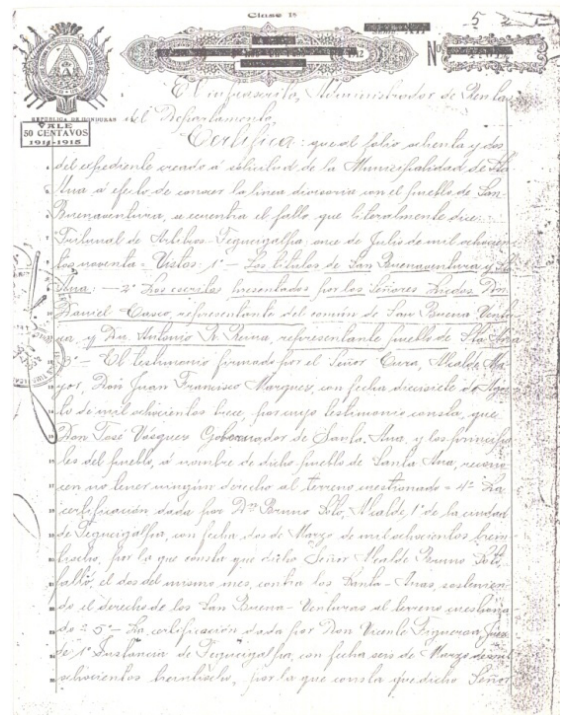 Clase 1ª
5 2
Nº
REPÚBLICA DE HONDURAS
VALE
50 CENTAVOS
1914-1915
El infrascrito, Administrador de Rentas
del Departamento,
Certifica: que al folio ochenta y dos
del expediente creado á solicitud de la Municipalidad de Sta
Ana á efecto de conocer la línea divisoria con el pueblo de San
Buenaventura, se encuentra el fallo que literalmente dice:
Tribunal de Arbitros-Tegucigalpa, once de Julio de mil ochocien
tos noventa - Vistos: 1º - Los títulos de San Buenaventura y Sta
Ana: - 2º Dos escritos presentados por los Señores Don
Daniel Casco, representante del común de San Buena Ventu
ra y Dn Antonio R. Reina, representante pueblo de Sta Ana
3º - El testimonio firmado por el Señor Cura, Alcalde Ma
yor, Don Juan Francisco Marques, con fecha diecisiete de
de mil ochocientos trece, por cuyo testimonio consta, que
Don José Vásquez Gobernador de Santa Ana, y los principa
les del pueblo, á nombre de dicho pueblo de Santa Ana, recono
cen no tener ningún derecho al terreno cuestionado - 4º La
certificación dada por Dn Bruno Soto, Alcalde 1º de la ciudad
de Tegucigalpa, con fecha dos de Marzo de mil ochocientos trein
tiocho, por la que consta que dicho Señor Alcalde Bruno Soto,
falló, el dos del mismo mes, contra los Santa-Anas, sostenien
do el derecho de los San Buena-Venturas al terreno cuestiona
do - 5º - La certificación dada por Don Vicente Figueroa, Juez
de 1ª Instancia de Tegucigalpa, con fecha seis de Marzo de mil
ochocientos treintiocho, por la que consta que dicho Señor